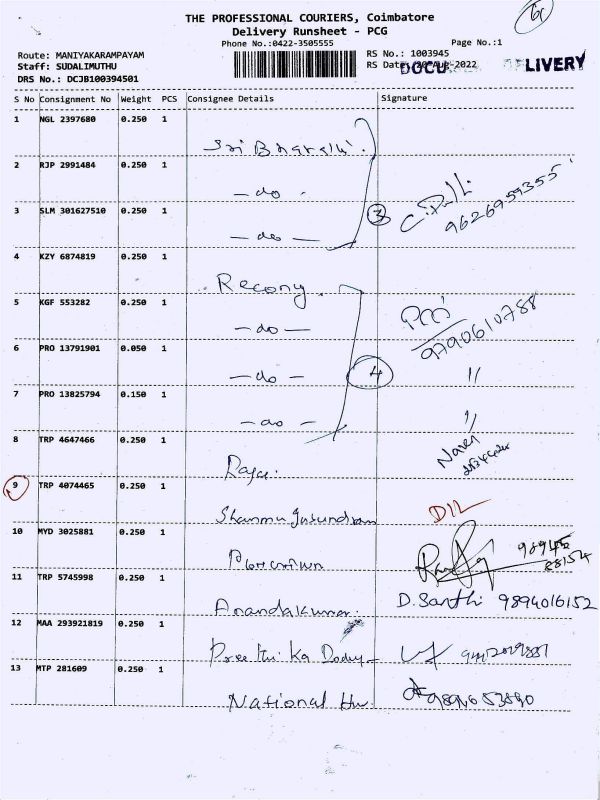 THE PROFESSIONAL COURIERS, Coimbatore
Delivery Runsheet - PCG
Phone No.:0422-3505555
Page No.:1
Route: MANIYAKARAMPAYAM
RS No.: 1003945
Staff: SUDALIMUTHU
RS Date: 20-Aug-2022
DOCU DELIVERY
DRS No.: DCJB100394501
S No Consignment No Weight PCS Consignee Details Signature
1 NGL 2397680 0.250 1
Sri Bharathi
2 RJP 2991484 0.250 1
- do -
3 SLM 301627510 0.250 1
3
9626959355
- do -
4 KZY 6874819 0.250 1
Recony
5 KGF 553282 0.250 1
- do -
9790610788
6 PRO 13791901 0.050 1
- do -
4
"
7 PRO 13825794 0.150 1
- do -
"
8 TRP 4647466 0.250 1
Raja
Naren
9 TRP 4074465 0.250 1
Shanmugasundram
D/L
10 MYD 3025881 0.250 1
11 TRP 5745998 0.250 1
Anandakumar
D. Santhi 9894016152
12 MAA 293921819 0.250 1
Preethi Ka
13 MTP 281609 0.250 1
National Hw.
9894653890